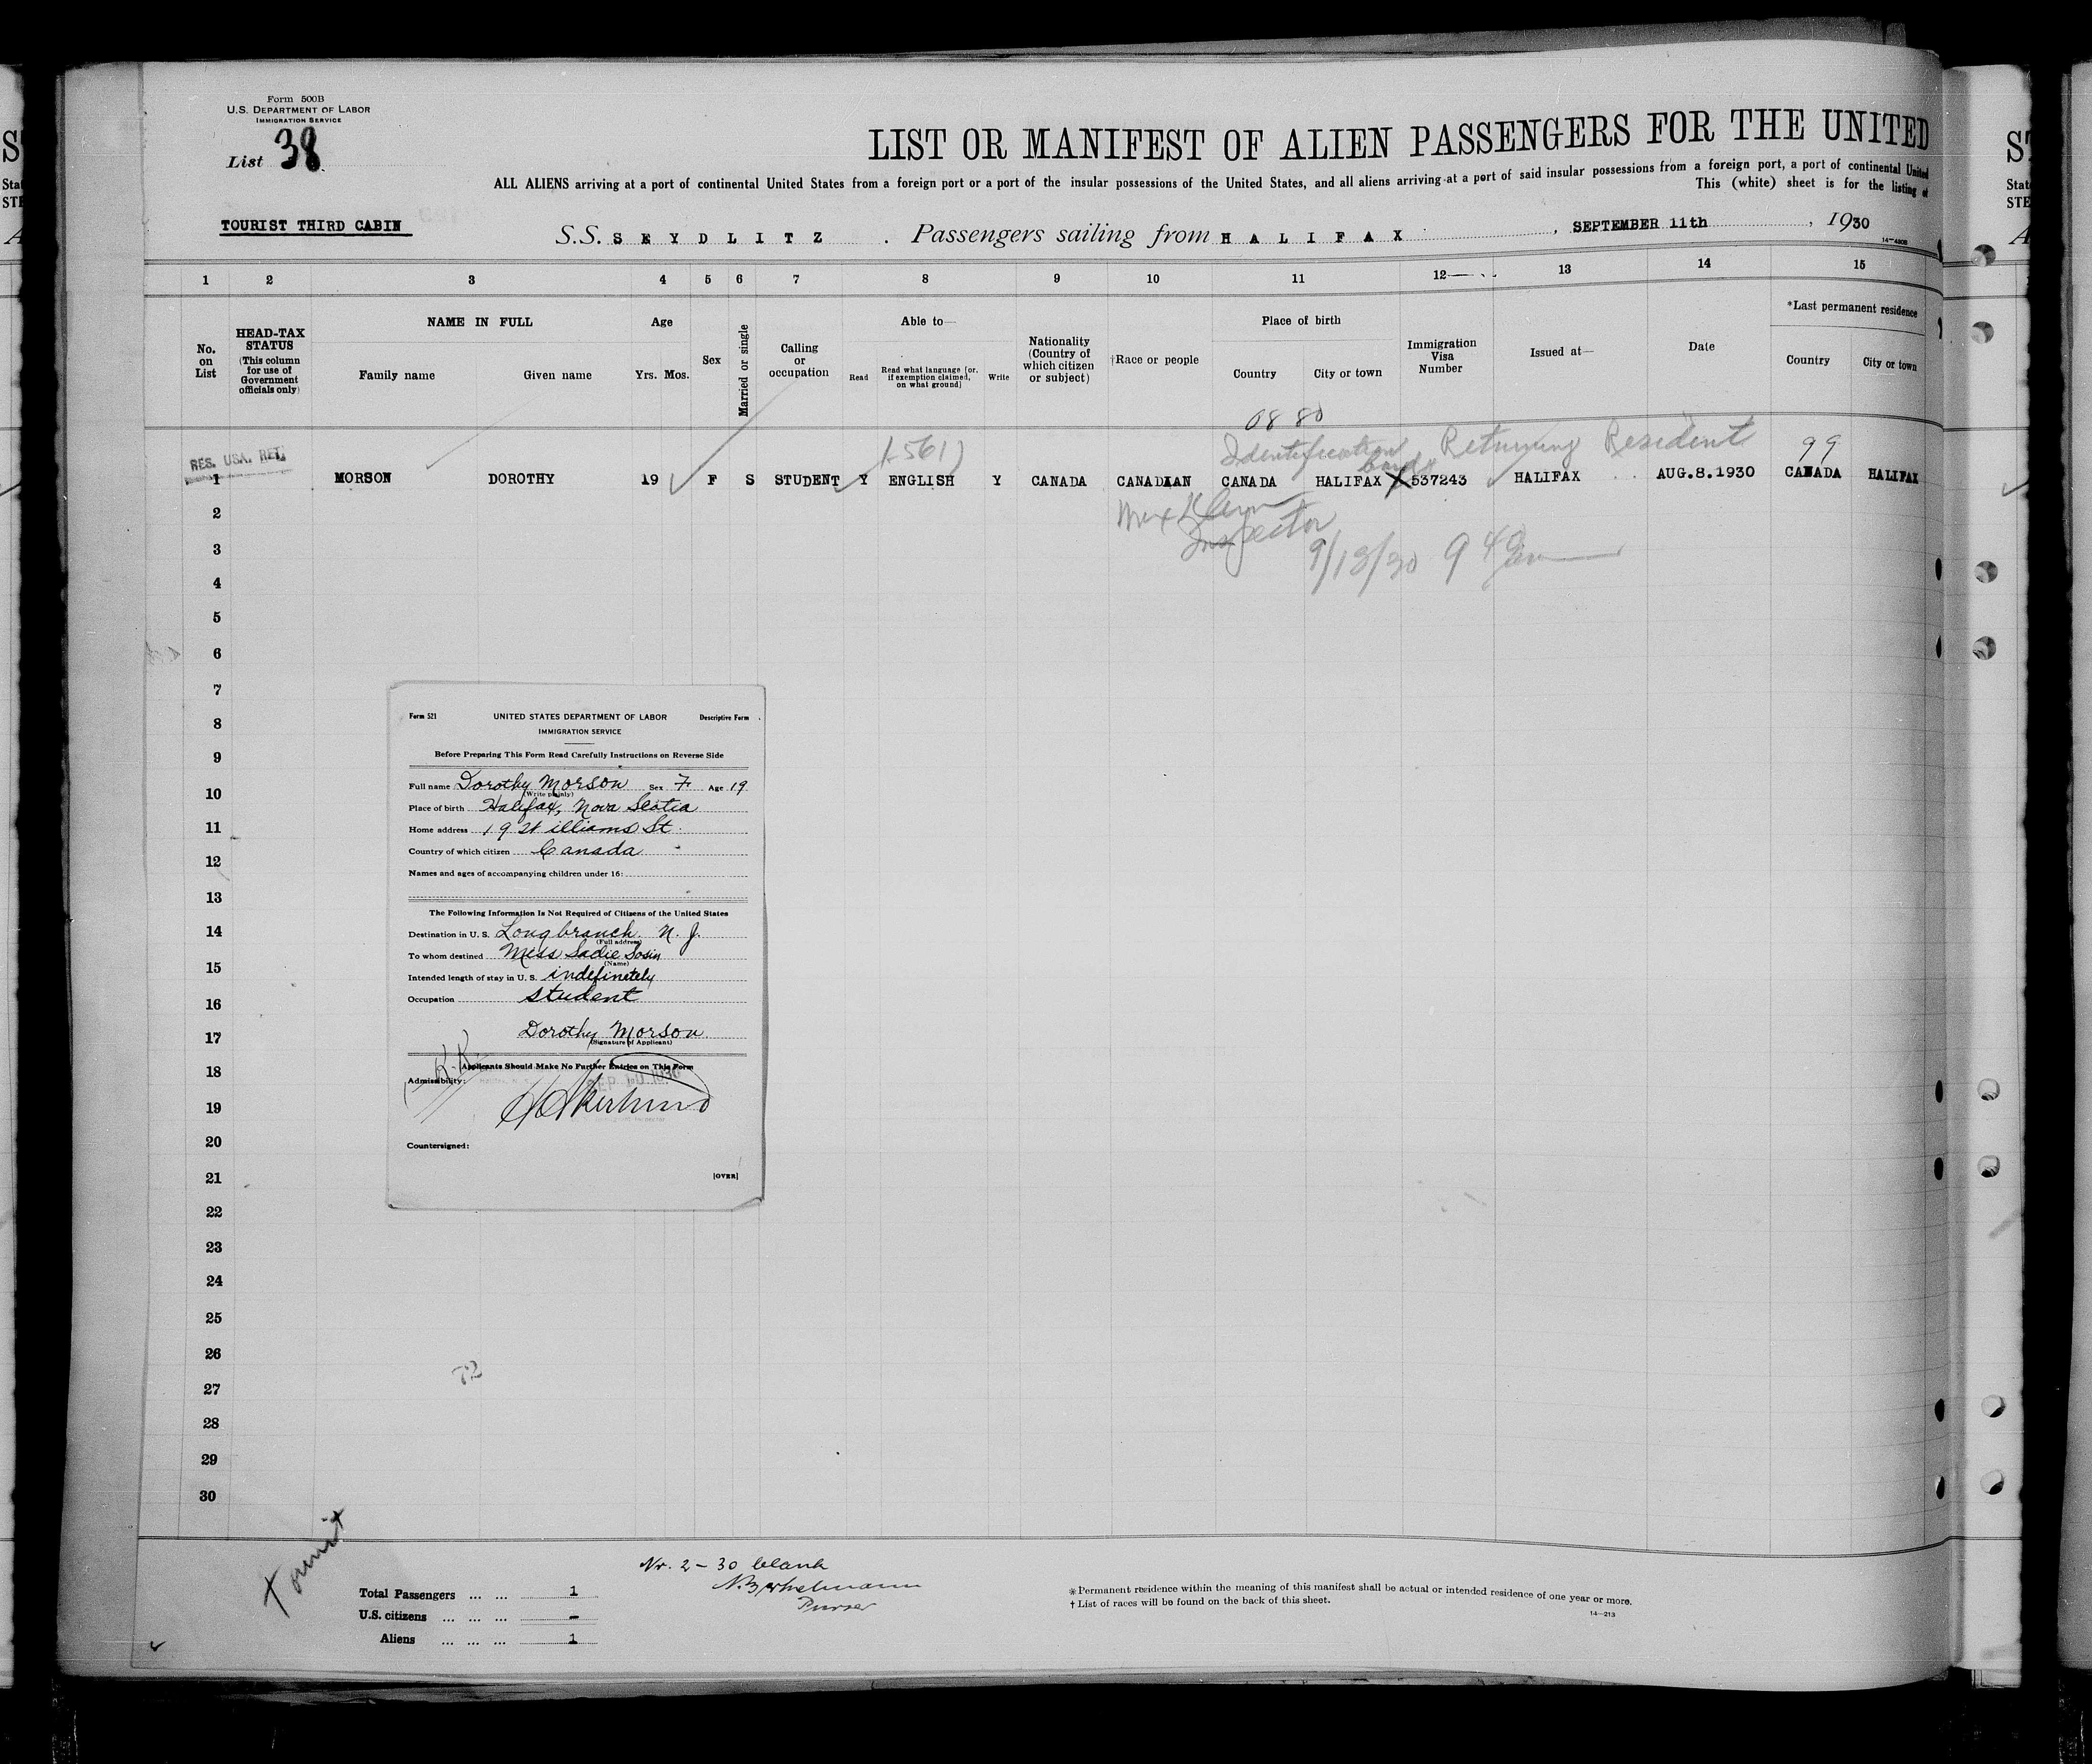 Form 500B
U.S. DEPARTMENT OF LABOR
IMMIGRATION SERVICE
List 38
LIST OR MANIFEST OF ALIEN PASSENGERS FOR THE UNITED
ALL ALIENS arriving at a port of continental United States from a foreign port or a port of the insular possessions of the United States, and all aliens arriving at a port of said insular possessions from a foreign port, a port of continental United
This (white) sheet is for the listing of
TOURIST THIRD CABIN
S.S. SEYDLITZ. Passengers sailing from HALIFAX, SEPTEMBER 11th, 1930
1 2 3 4 5 6 7 8 9 10 11 12 13 14 15
No. on List
HEAD-TAX STATUS (This column for use of Government officials only)
NAME IN FULL
Family name Given name
Age
Yrs. Mos.
Sex
Married or single
Calling or occupation
Able to—
Read Read what language [or, if exemption claimed, on what ground] Write
Nationality (Country of which citizen or subject)
†Race or people
Place of birth
Country City or town
Immigration Visa Number
Issued at—
Date
*Last permanent residence
Country City or town
0880
Identification Returning Resident 99
RES. USA. RET.
1 MORSON DOROTHY 19 F S STUDENT Y ENGLISH Y CANADA CANADIAN CANADA HALIFAX X 537243 HALIFAX AUG.8.1930 CANADA HALIFAX
Inspector
9/13/30
2
3
4
5
6
7
8
9
10
11
12
13
14
15
16
17
18
19
20
21
22
23
24
25
26
27
28
29
30
Form 521 UNITED STATES DEPARTMENT OF LABOR Descriptive Form
IMMIGRATION SERVICE
Before Preparing This Form Read Carefully Instructions on Reverse Side
Full name Dorothy Morson Sex F Age 19
(Write plainly)
Place of birth Halifax, Nova Scotia
Home address 19 St illiams St.
Country of which citizen Canada
Names and ages of accompanying children under 16:
The Following Information Is Not Required of Citizens of the United States
Destination in U. S. Longbranch. N. J.
(Full address)
To whom destined Miss Sadie Sosin
(Name)
Intended length of stay in U. S. indefinitely
Occupation student
Dorothy Morson
(Signature of Applicant)
Applicants Should Make No Further Entries on This Form
Admissibility:
SEP 10 1930
Countersigned:
[OVER]
72
Tourist
Total Passengers ... ... 1
U.S. citizens ... ... ... -
Aliens ... ... ... 1
Nr. 2 - 30 blank
Purser
* Permanent residence within the meaning of this manifest shall be actual or intended residence of one year or more.
† List of races will be found on the back of this sheet.
14—213